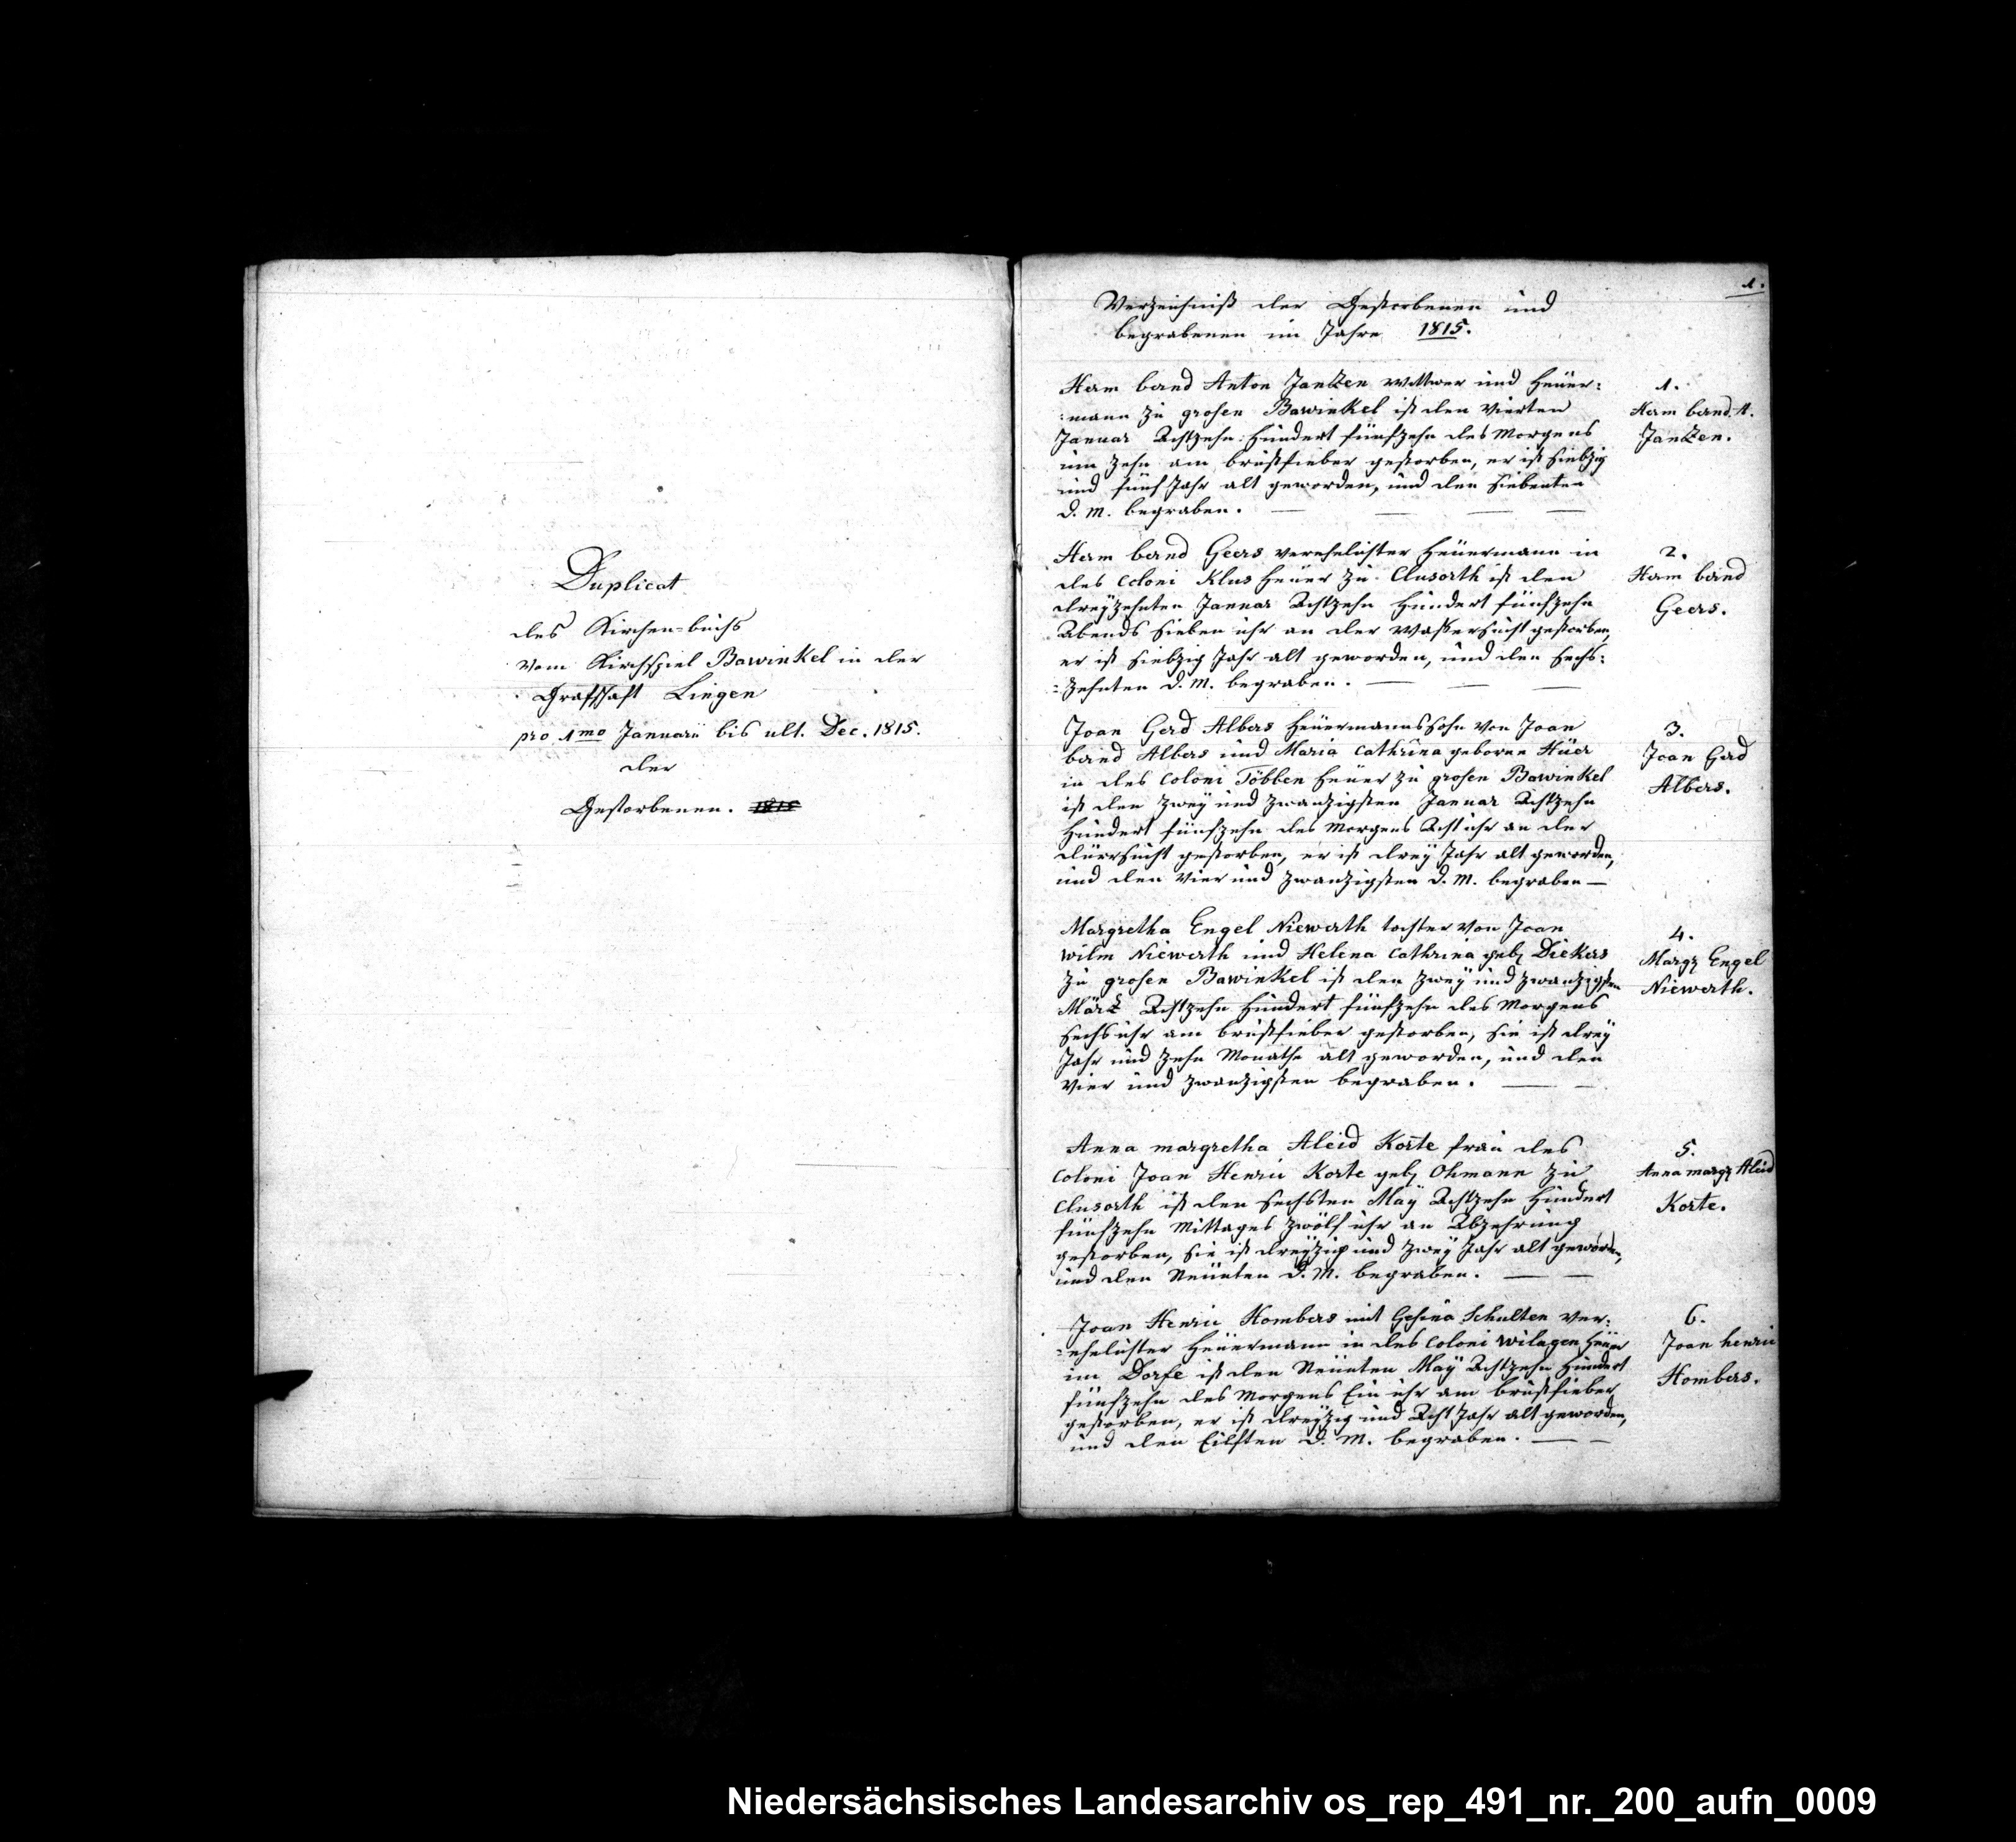 Duplicat
des Kirchen=buchs
vom Kirchspiel Bawinkel in der
Grafschaft Lingen
pro 1mo Januarii bis ult. Dec. 1815.
der
Gestorbenen. 1815
1.
Verzeichniß der Gestorbenen und
begrabenen im Jahre 1815.
Herm bernd Anton Jantzen wittwer und Heuer=
=mann zu grosen Bawinkel ist den vierten
Januar Achtzehn Hundert fünfzehn des Morgens
um zehn am brustfieber gestorben, er ist siebzig
und fünf Jahr alt geworden, und den siebenten
d. M. begraben.
1.
Herm bernd. A.
Jantzen.
Herm bernd Geers verehelichter Heuermann in
des Coloni Klus Heuer zu Clusorth ist den
dreyzehnten Januar Achtzehn Hundert fünfzehn
Abends sieben uhr an der wassersucht gestorben,
er ist siebzig Jahr alt geworden, und den sechs=
=zehnten d. M. begraben.
2.
Herm bernd
Geers.
Joan Gerd Albers Heuermannssohn von Joan
bernd Albers und Maria Cathrina geboren Hüer
in des Coloni Többen Heuer zu grosen Bawinkel
ist den zwey und zwanzigsten Januar Achtzehn
Hundert fünfzehn des Morgens Acht uhr an der
dürrsucht gestorben, er ist drey Jahr alt geworden,
und den vier und zwanzigsten d. M. begraben
3.
Joan Gerd
Albers.
Margretha Engel Niewerth tochter von Joan
wilm Niewerth und Helena Cathrina geb. Diekers
zu grosen Bawinkel ist den zwey und zwanzigsten
März Achtzehn Hundert fünfzehn des Morgens
sechs uhr am brustfieber gestorben, sie ist drey
Jahr und zehn Monathe alt geworden, und den
vier und zwanzigsten begraben.
4.
Margr Engel
Niewerth.
Anna margretha Aleid Korte frau des
Coloni Joan Henric Korte geb. Ohmann zu
Clusorth ist den sechsten May Achtzehn Hundert
fünfzehn Mittages zwölf uhr an Abzehrung
gestorben, sie ist dreyzig und zwey Jahr alt geworden,
und den Neunten d. M. begraben.
5.
Anna margr Aleid
Korte.
Joan Henric Hombers mit Gesina Schulten ver=
=ehelichter Heuermann in des Coloni Heuer
im Dorfe ist den Neunten May Achtzehn Hundert
fünfzehn des Morgens Ein uhr am brustfieber
gestorben, er ist dreyzig und Acht Jahr alt geworden,
und den Eilften d. M. begraben.
6.
Joan henric
Hombers.
Niedersächsisches Landesarchiv os_rep_491_nr._200_aufn_0009